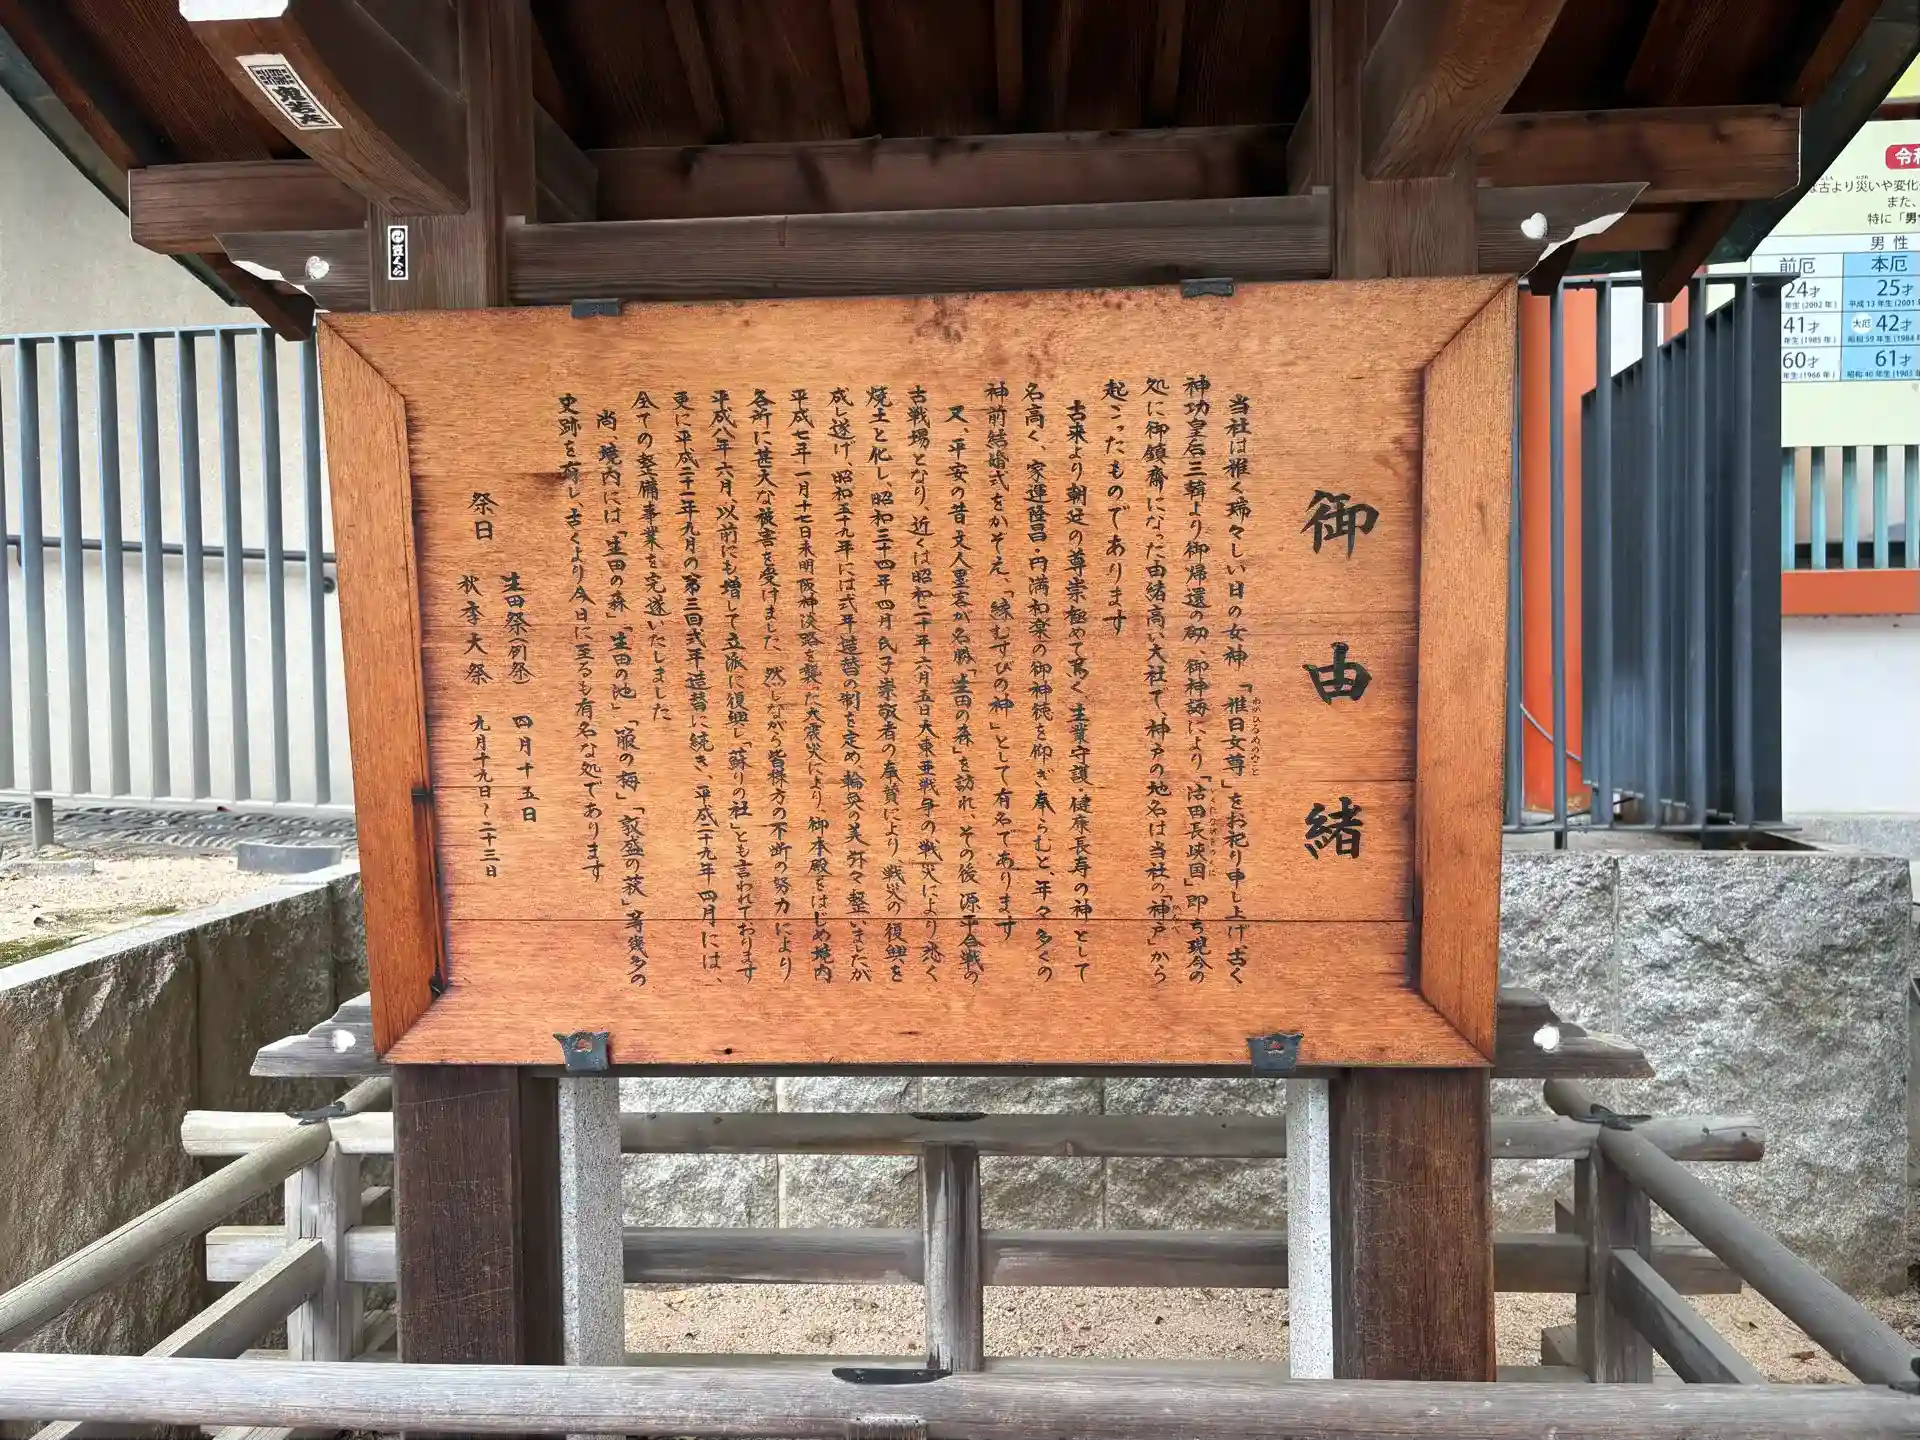 御由緒
当社は稚く瑞々しい日の女神「稚日女尊」をお祀り申し上げ古く
わかひるめのみこと
神功皇后三韓より御帰還の砌、御神誨により「活田長峡国」即ち現今の
いくたながさのくに
処に御鎮齋になった由緒高い大社で、神戸の地名は当社の「神戸」から
かんべ
起こったものであります
古来より朝廷の尊崇極めて篤く、生業守護・健康長寿の神として
名高く、家運隆昌・円満和楽の御神徳を仰ぎ奉らむと、年々多くの
神前結婚式をかぞえ、「縁むすびの神」として有名であります
又、平安の昔文人墨客が名勝「生田の森」を訪れ、その後源平合戦の
古戦場となり、近くは昭和二十年六月五日大東亜戦争の戦災により悉く
焼土と化し、昭和三十四年四月氏子崇敬者の奉賛により戦災の復興を
成し遂げ、昭和五十九年には式年造替の制を定め、輪奐の美弥々整いましたが
平成七年一月十七日未明阪神淡路を襲った大震災により、御本殿をはじめ境内
各所に甚大な被害を受けました 然しながら皆様方の不断の努力により
平成八年六月、以前にも増して立派に復興し「蘇りの社」とも言われております
更に平成二十一年九月の第三回式年造替に続き、平成二十九年四月には、
全ての整備事業を完遂いたしました
尚、境内には「生田の森」「生田の池」「箙の梅」「敦盛の萩」等幾多の
史跡を有し古くより今日に至るも有名な処であります
祭日
生田祭(例祭) 四月十五日
秋季大祭 九月十九日～二十三日
豊くら
令和
古より災いや変化
また、
特に「男
男性
前厄 本厄
24才 25才
年生(2002年) 平成13年生(2001
41才 大厄 42才
年生(1985年) 昭和59年生(1984
60才 61才
年生(1966年) 昭和40年生(1965